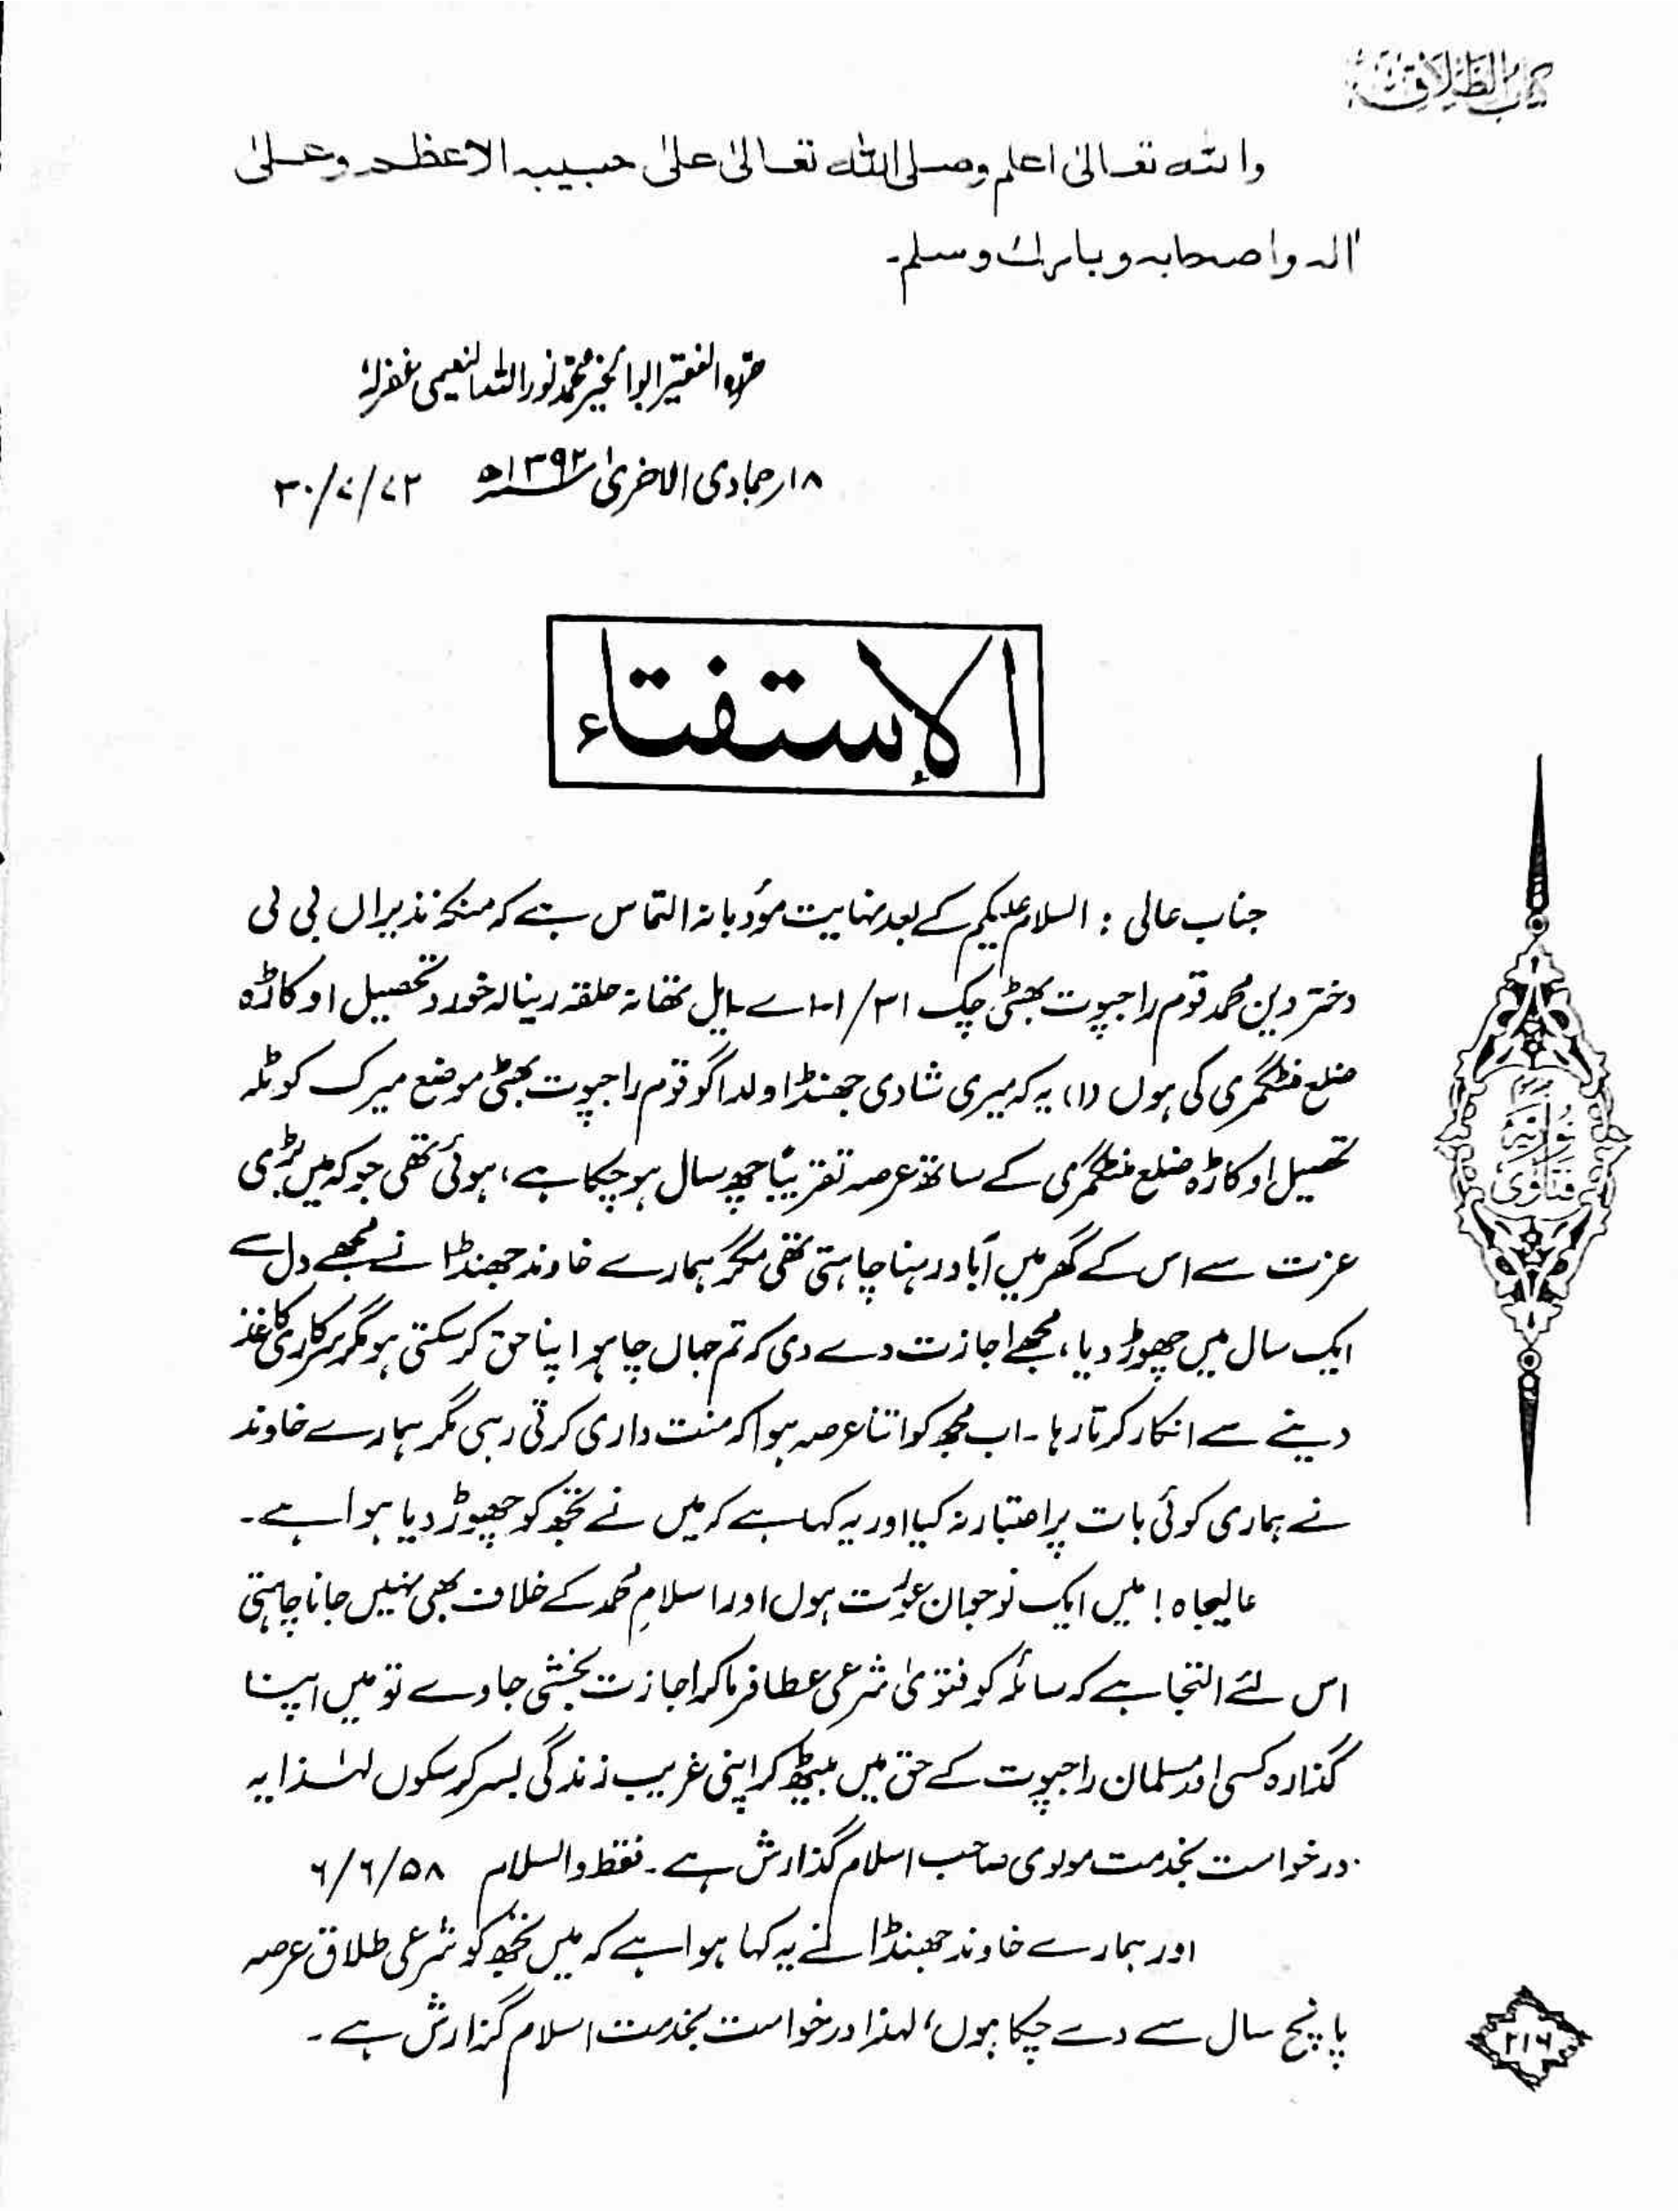 کتاب الطلاق
واللہ تعالیٰ اعلم وصلی اللہ تعالیٰ علیٰ حبیبہ الاعظم وعلیٰ
اٰلہ واصحابہ وبارک وسلم۔
حررہ الفقیر ابوالخیر محمد نور اللہ النعیمی غفرلہٗ
۱۸؍جمادی الاخریٰ ۱۳۹۲ھ ۳۰/۷/۷۲
الاستفتاء
جناب عالی : السلام علیکم کے بعد نہایت مؤدبانہ التماس ہے کہ منکہ نذیراں بی بی
دختر دین محمد قوم راجپوت بھٹی چک ۳۱/۱-اے ایل تھانہ حلقہ رینالہ خورد تحصیل اوکاڑہ
ضلع منٹگمری کی ہوں (۱) یہ کہ میری شادی جھنڈا ولد اگو قوم راجپوت بھٹی موضع میرک کوٹلہ
تحصیل اوکاڑہ ضلع منٹگمری کے ساتھ عرصہ تقریباً چھ سال ہوچکا ہے، ہوئی تھی جو کہ میں بڑی
عزت سے اس کے گھر میں آباد رہنا چاہتی تھی مگر ہمارے خاوند جھنڈا نے مجھے دل سے
ایک سال میں چھوڑ دیا، مجھے اجازت دے دی کہ تم جہاں چاہو اپنا حق کرسکتی ہو مگر سرکاری کاغذ
دینے سے انکار کرتا رہا ۔ اب مجھ کو اتنا عرصہ ہوا کہ منت داری کرتی رہی مگر ہمارے خاوند
نے ہماری کوئی بات پر اعتبار نہ کیا اور یہ کہا ہے کہ میں نے تجھ کو چھوڑ دیا ہوا ہے۔
عالیجاہ ! میں ایک نوجوان عورت ہوں اور اسلامِ محمد کے خلاف بھی نہیں جانا چاہتی
اس لئے التجا ہے کہ سائلہ کو فتویٰ شرعی عطا فرما کر اجازت بخشی جاوے تو میں اپنا
گذارہ کسی اور مسلمان راجپوت کے حق میں بیٹھ کر اپنی غریب زندگی بسر کرسکوں لہٰذا یہ
درخواست بخدمت مولوی صاحب اسلام گذارش ہے ۔ فقط والسلام ۶/۶/۵۸
اور ہمارے خاوند جھنڈا نے یہ کہا ہوا ہے کہ میں تجھ کو شرعی طلاق عرصہ
پانچ سال سے دے چکا ہوں، لہٰذا درخواست بخدمت اسلام گزارش ہے ۔
فتاویٰ نوریہ
۲۱۶